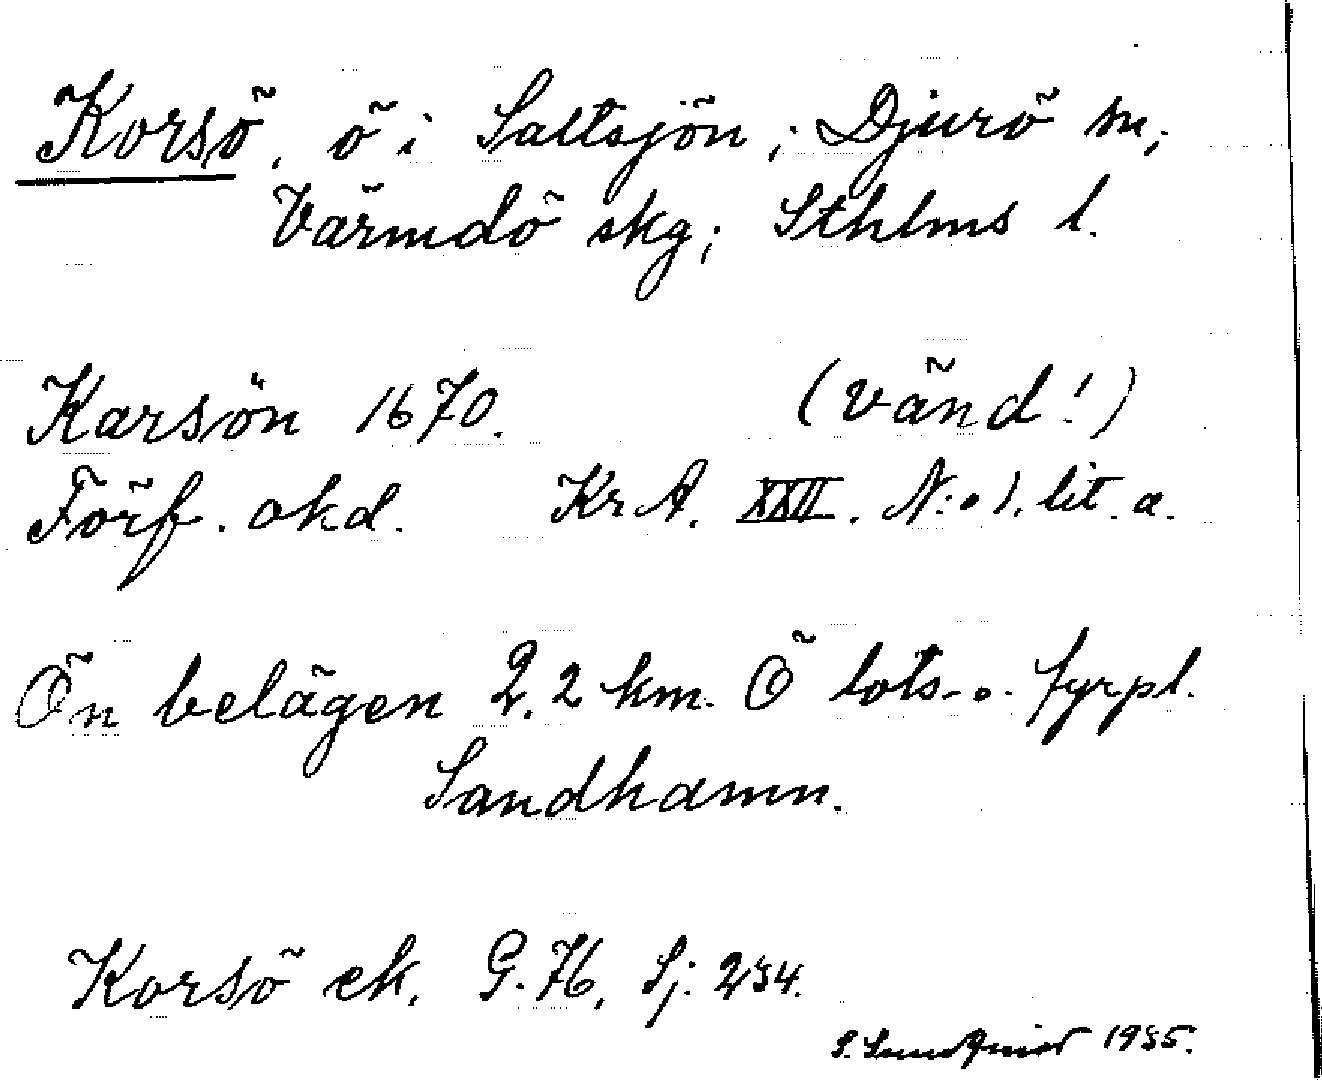 Korsö, ö i Saltsjön; Djurö sn;
Värmdö skg; Sthlms l.
Karsön 1670. (vänd!)
Förf. okd. KrA. XXII. N:o 1. lit. a.
Ön belägen 2,2 km. Ö lots- o. fyrpl.
Sandhamn.
Korsö ek. G. 76, Sj: 234.
1935.